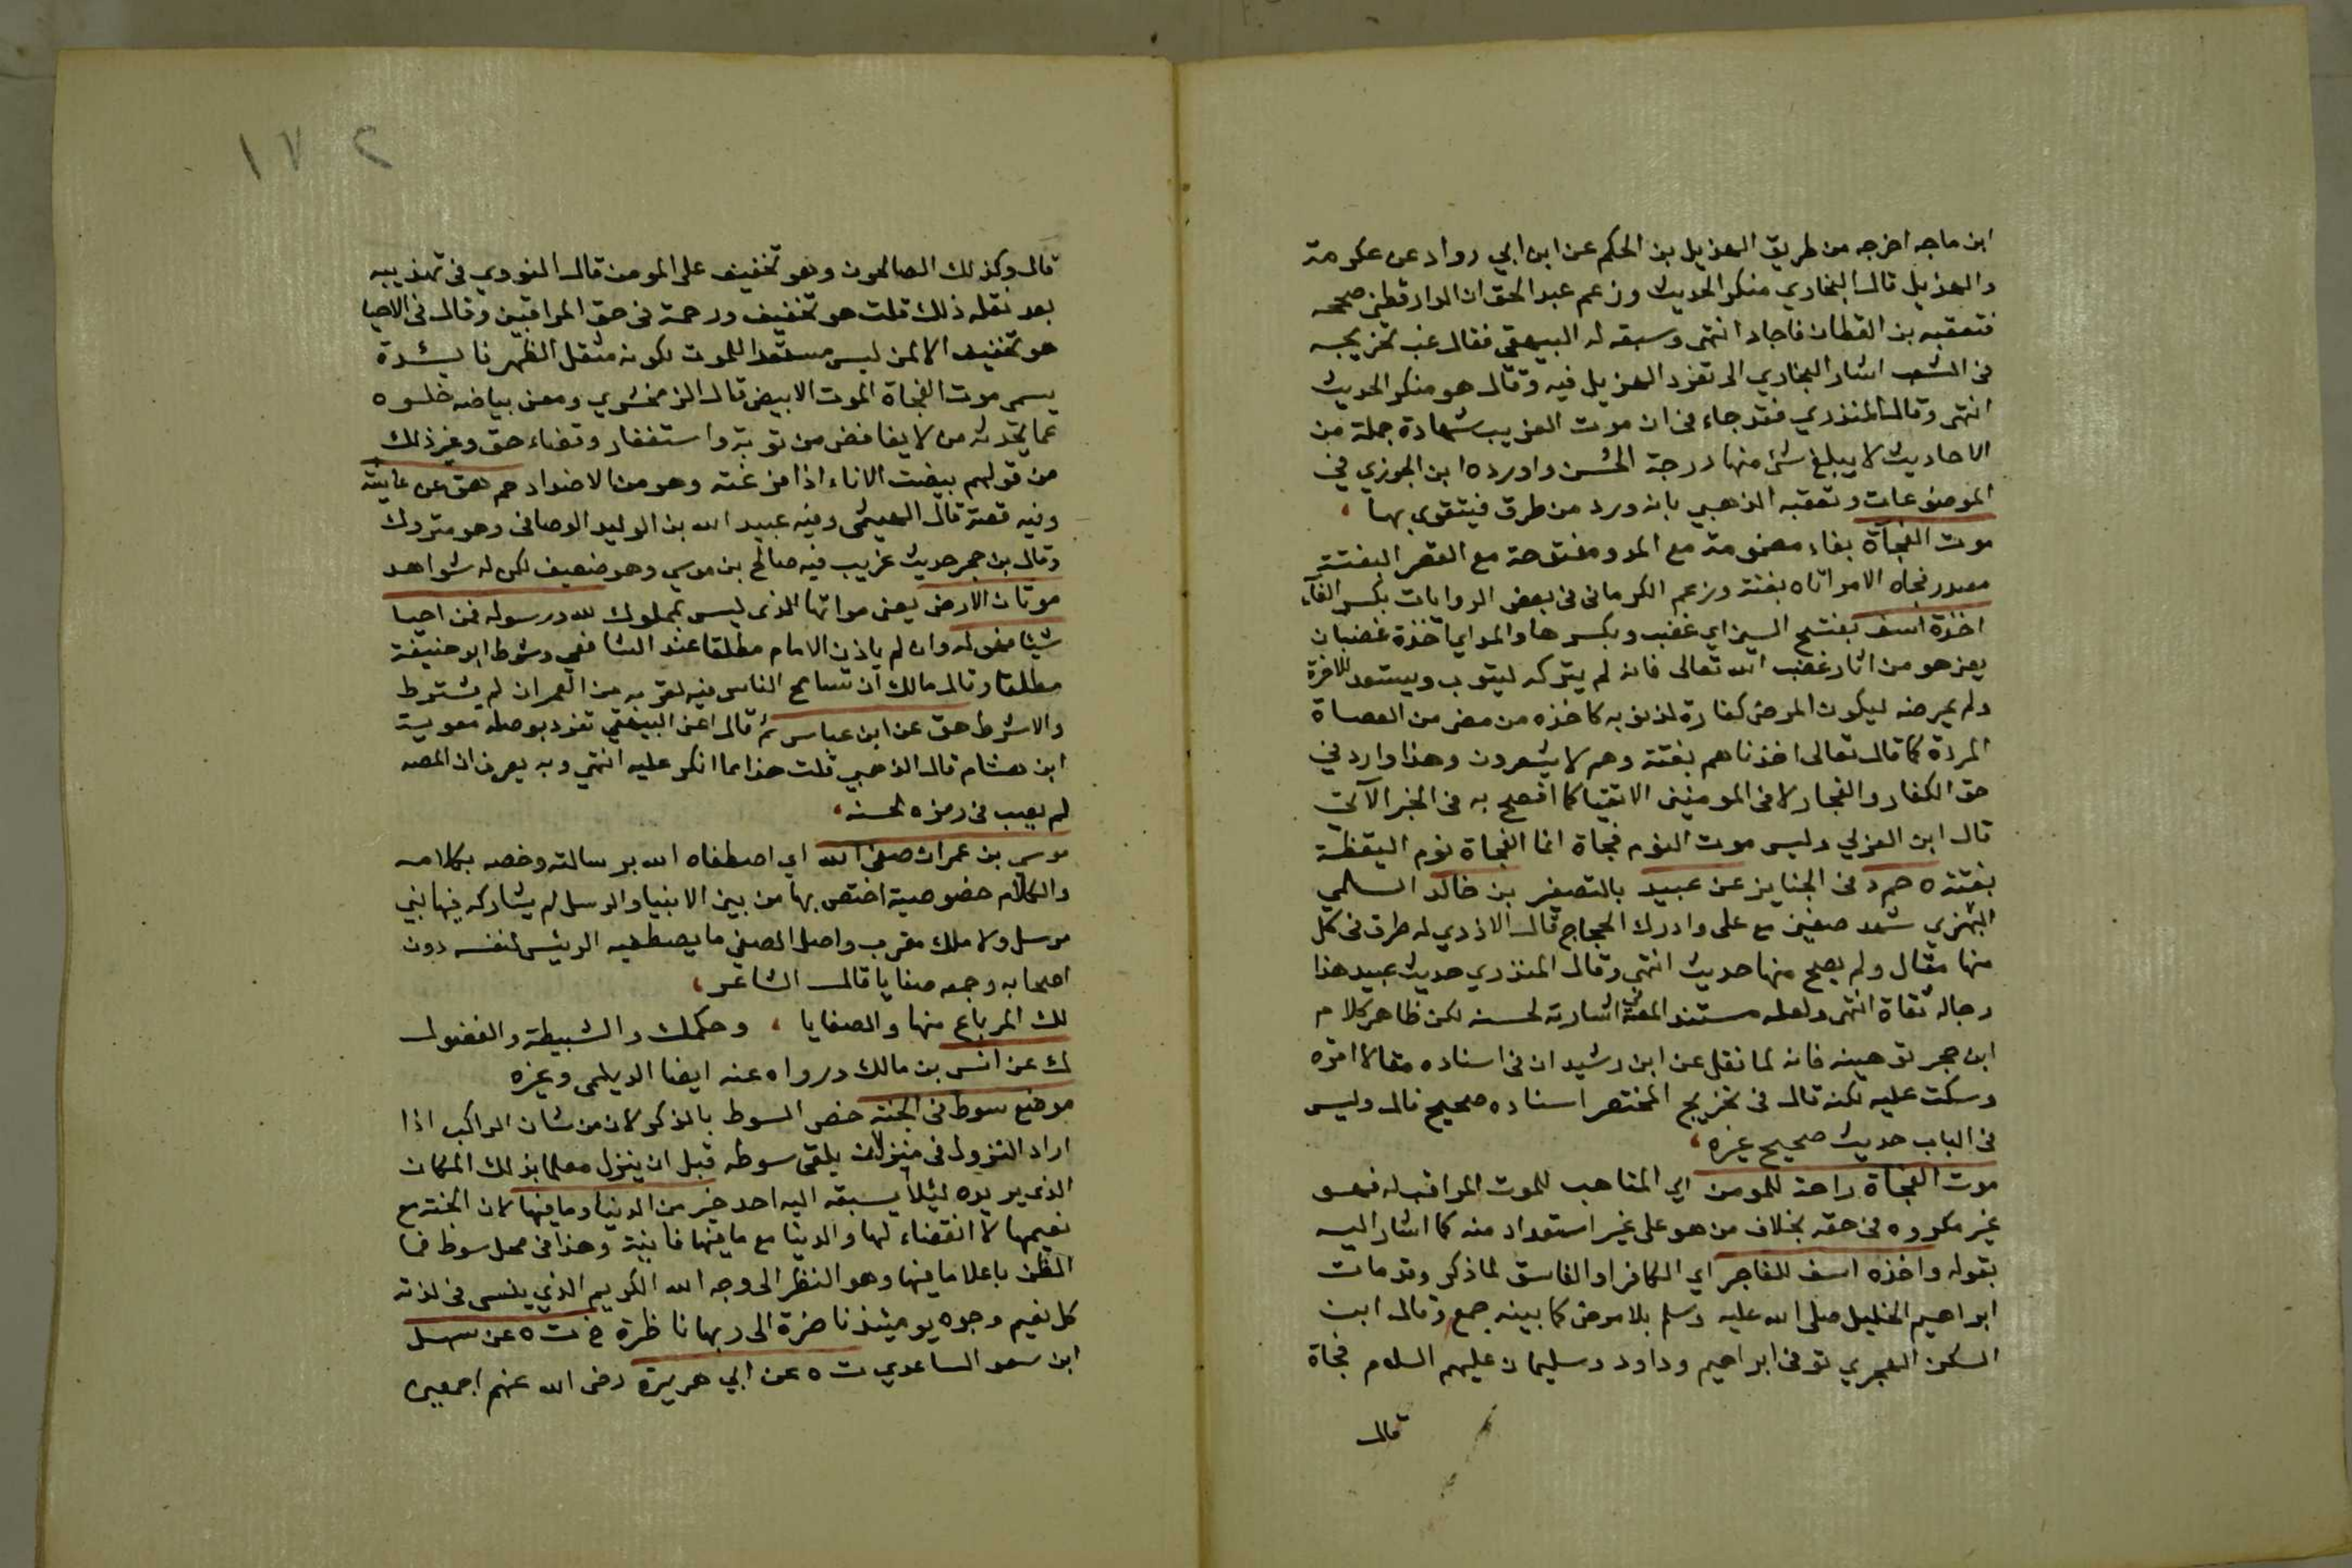 ابن ماجه اخرجه من طريق الهذيل بن الحكم عن ابن ابي رواد عن عكرمة
والهذيل قال البخاري منكر الحديث وزعم عبد الحق ان الدارقطني صححه
فتعقبه بن القطان فاجاد انتهى وسبقه له البيهقي فقال عقب تخريجه
في الشعب اشار البخاري الى تفرد الهذيل فيه وقال هو منكر الحديث
انتهى وقال المنذري فقد جاء في ان موت الغريب شهادة جملة من
الاحاديث لا يبلغ شئ منها درجة الحسن واورده ابن الجوزي في
الموضوعات وتعقبه الذهبي بانه ورد من طرق فيتقوى بها ،
موت الفجآة بفاء مضمومة مع المد ومفتوحة مع القصر البغتة
مصدر فجاه الامر اتاه بغتة وزعم الكرماني في بعض الروايات بكسر الفآء
اخذة اسف بفتح السين اي غضب وبكسرها والمد اي اخذة غضبان
يعني هو من اثار غضب الله تعالى فانه لم يتركه ليتوب ويستعد للاخرة
ولم يمرضه ليكون المرض كفارة لذنوبه كاخذه من مضى من العصاة
المردة كما قال تعالى اخذناهم بغتة وهم لا يشعرون وهذا وارد في
حق الكفار والفجار لا في المومنين الاتقيا كما افصح به في الخبر الآتي
قال ابن العربي وليس موت النوم فجاة انما الفجاة نوم اليقظة
بغتة ه حم د في الجنايز عن عبيد بالتصغير بن خالد السلمي
البهزي شهد صفين مع علي وادرك الحجاج قال الازدي له طرق في كل
منها مقال ولم يصح منها حديث انتهى وقال المنذري حديث عبيد هذا
رجاله ثقاة انتهى ولعله مستند المص في اشارته لحسنه لكن ظاهر كلام
ابن حجر توهينه فانه لما نقل عن ابن رشيد ان في اسناده مقالا اقره
وسكت عليه لكنه قال في تخريج المختصر اسناده صحيح قال وليس
في الباب حديث صحيح غيره ،
موت الفجاة راحة للمومن اي المتاهب للموت المراقب له فهو
غير مكروه في حقه بخلاف من هو على غير استعداد منه كما اشار اليه
بقوله واخذه اسف للفاجر اي الكافر او الفاسق لما ذكر وقد مات
ابراهيم الخليل صلى الله عليه وسلم بلا مرض كما بينه جمع وقال ابن
السكن الهجري توفي ابراهيم وداود وسليمان عليهم السلام فجاة
قال
١٧٢
قال وكذلك الصالحون وهو تخفيف على المومن قال النووي في تهذيبه
بعد نقله ذلك قلت هو تخفيف ورحمة في حق المراقبين وقال في الاحيا
هو تخفيف الا لمن ليس مستعدا للموت لكونه مثقل الظهر فايـدة
يسمى موت الفجاة الموت الابيض قال الزمخشري ومعنى بياضه خلوه
عما يحدثه من لا يغافض من توبة واستغفار وقضاء حق وغير ذلك
من قولهم بيضت الاناء اذا فرغته وهو من الاضداد حم هق عن عايشة
وفيه قصة قال الهيثمي وفيه عبيد الله بن الوليد الوصافي وهو متروك
وقال بن حجر حديث غريب فيه صالح بن موسي وهو ضعيف لكن له شواهد
موتان الارض يعني مواتها الذي ليس بمملوك لله ورسوله فمن احيا
شيئا فهو له وان لم ياذن الامام مطلقا عند الشافعي وشرط ابو حنيفة
مطلقا وقال مالك ان تسامح الناس فيه لقربه من العمران لم يشترط
والا شرط هق عن ابن عباس ثم قال اعني البيهقي تفرد بوصله معوية
ابن هشام قال الذهبي قلت هذا مما انكر عليه انتهى وبه يعرف ان المص
لم يصب في رمزه لحسنه ،
موسى بن عمران صفي الله اي اصطفاه الله برسالته وخصه بكلامه
والكلام خصوصية اختص بها من بين الانبيا والرسل لم يشاركه فيها نبي
مرسل ولا ملك مقرب واصل الصفي ما يصطفيه الرئيس لنفسه دون
اصحابه وجمعه صفايا قال الشاعر ،
لك المرباع منها والصفايا ، وحكمك والنشيطة والفضول
ك عن انس بن مالك ورواه عنه ايضا الديلمي وغيره
موضع سوط في الجنة خص السوط بالذكر لان من شان الراكب اذا
اراد النزول في منزل ان يلقى سوطه قبل ان ينزل معلما بذلك المكان
الذي يريده لئلا يسبقه اليه احد خير من الدنيا وما فيها لان الجنة مع
نعيمها لا انقضاء لها والدنيا مع ما فيها فانية وهذا في محل سوط فما
الظن باعلا ما فيها وهو النظر الى وجه الله الكريم الذي ينسى في لذته
كل نعيم وجوه يومئذ ناضرة الى ربها ناظرة خ ت ه عن سهل
ابن سعد الساعدي ت ه عن ابي هريرة رضى الله عنهم اجمعين